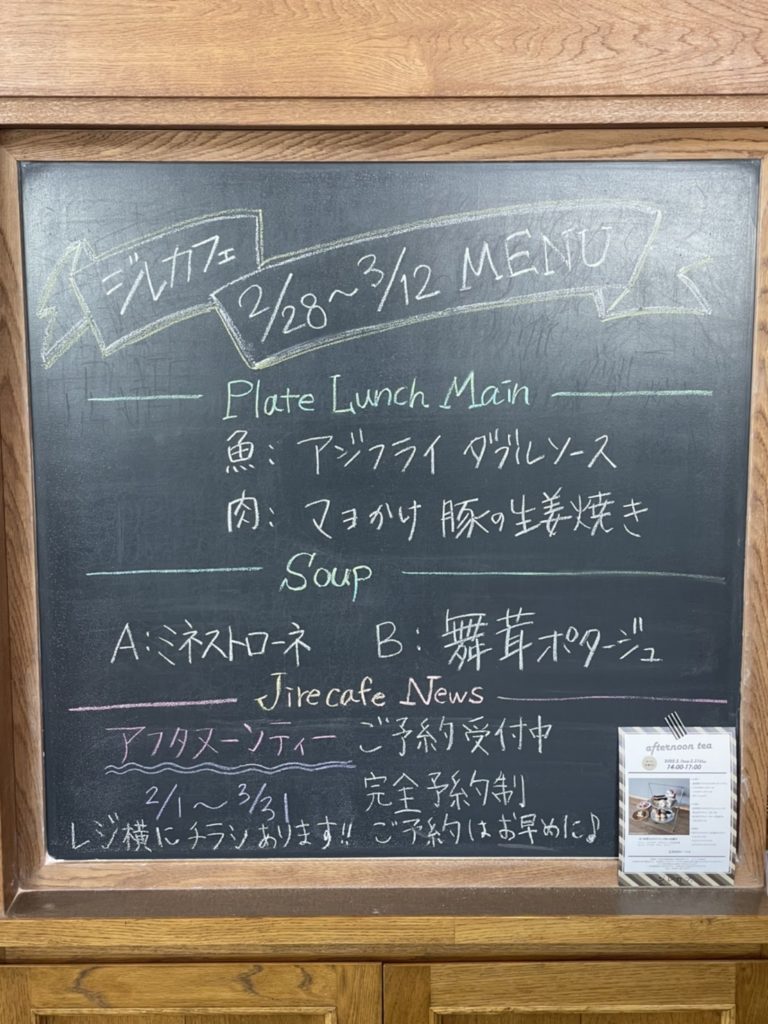 ジルカフェ
2/28～3/12 MENU
Plate Lunch Main
魚: アジフライ ダブルソース
肉: マヨかけ 豚の生姜焼き
Soup
A:ミネストローネ B: 舞茸ポタージュ
Jirecafe News
アフタヌーンティー ご予約受付中
2/1～3/31 完全予約制
レジ横にチラシあります!! ご予約はお早めに♪
afternoon tea
14:00-17:00